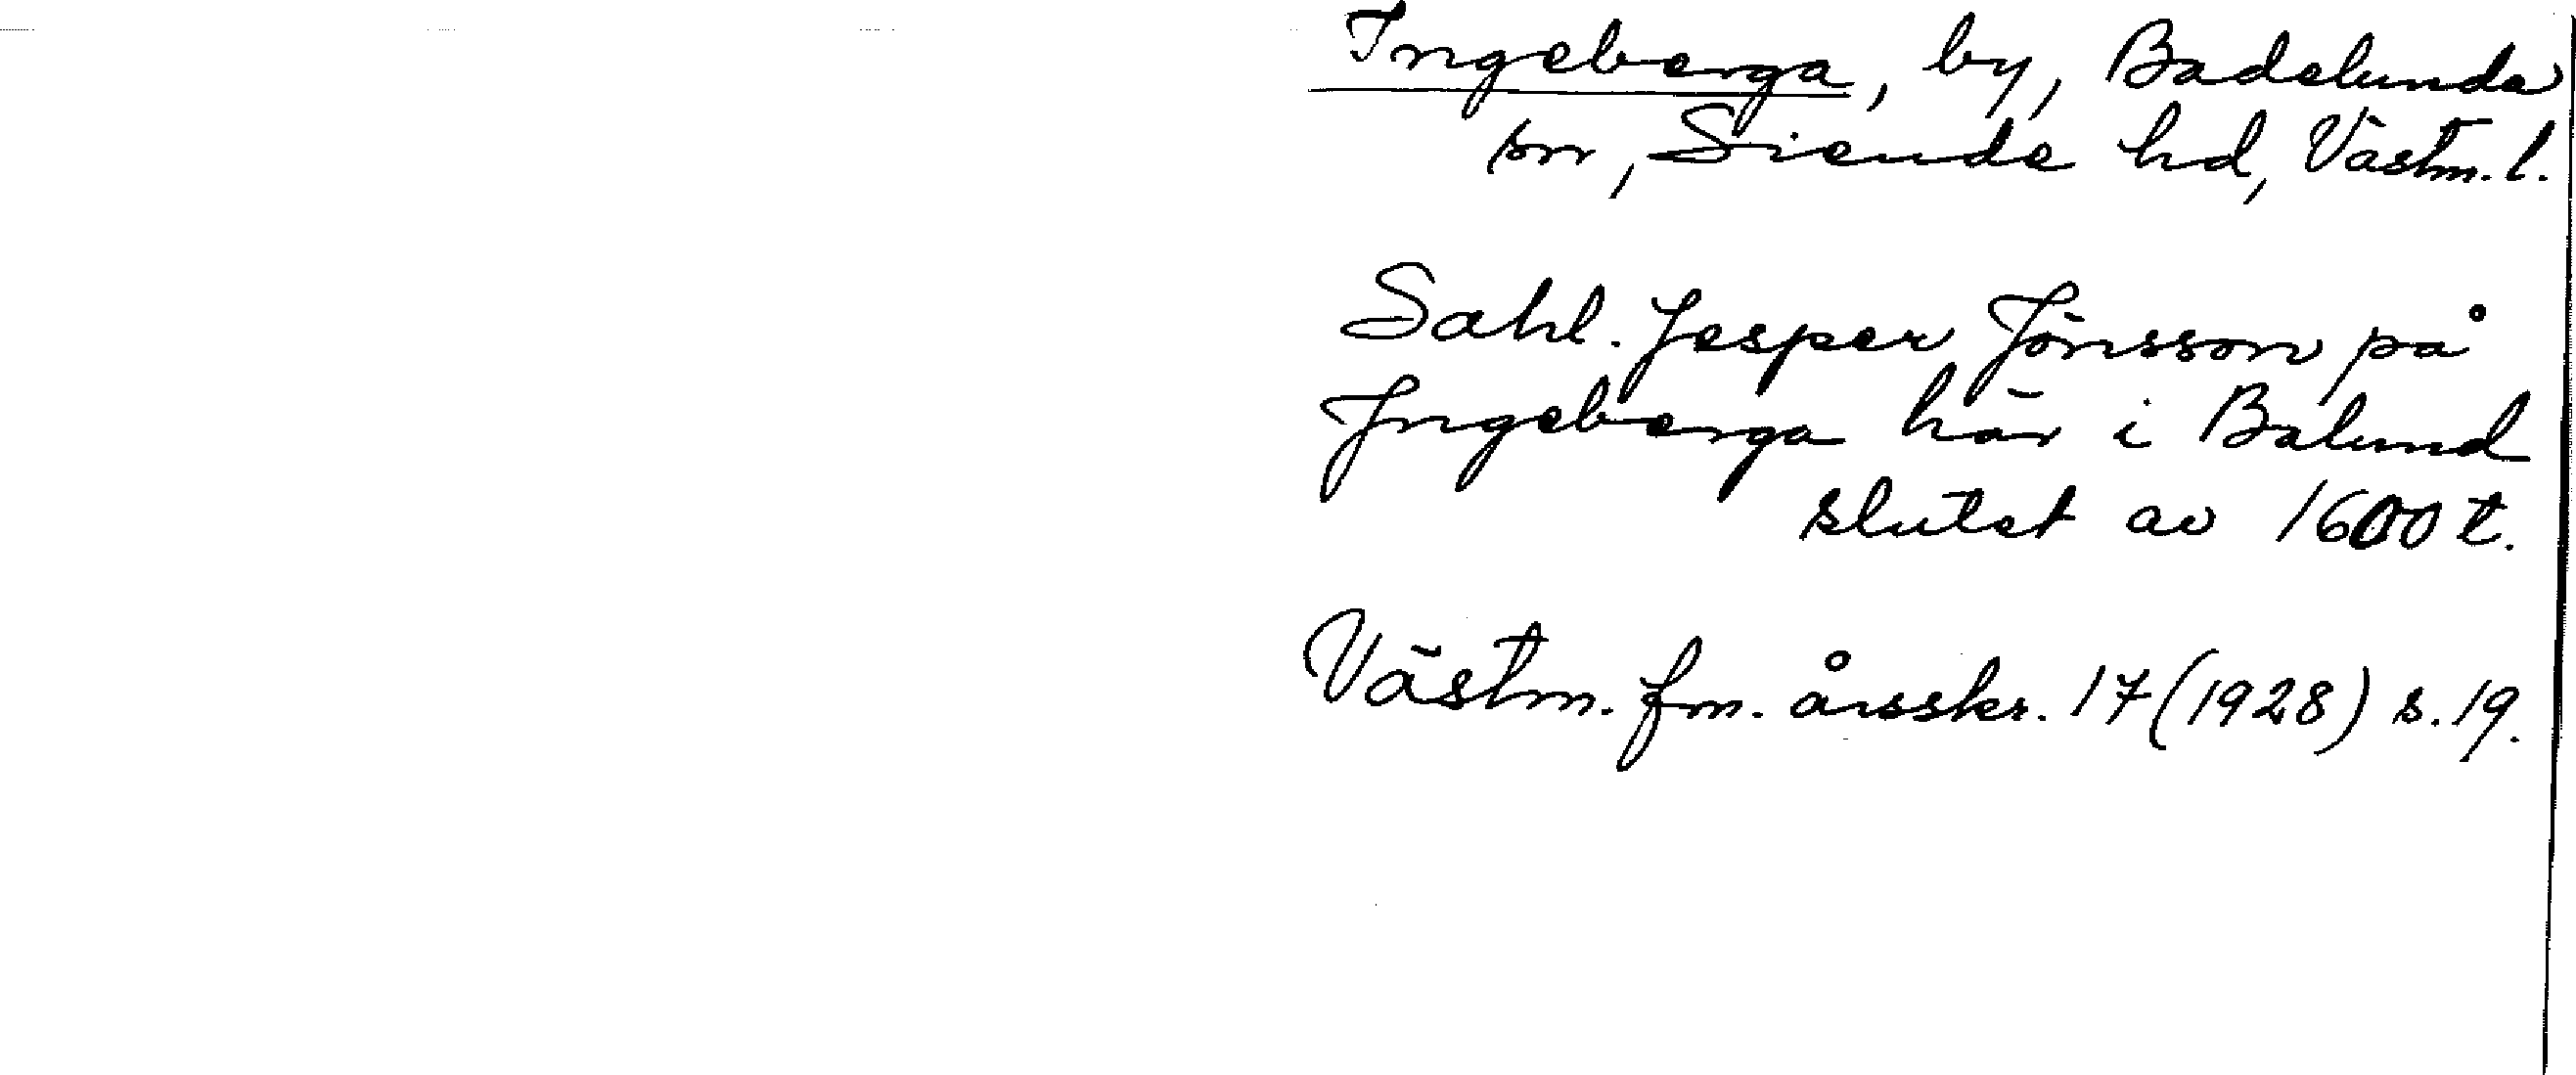 Ingeberga, by, Badelunda
sn, Siende hd, Västm. l.
Sahl. Jesper Jönsson på
Ingeberga här i Balund
slutet av 1600 t.
Västm. fm. årsskr. 17 (1928) s. 19.